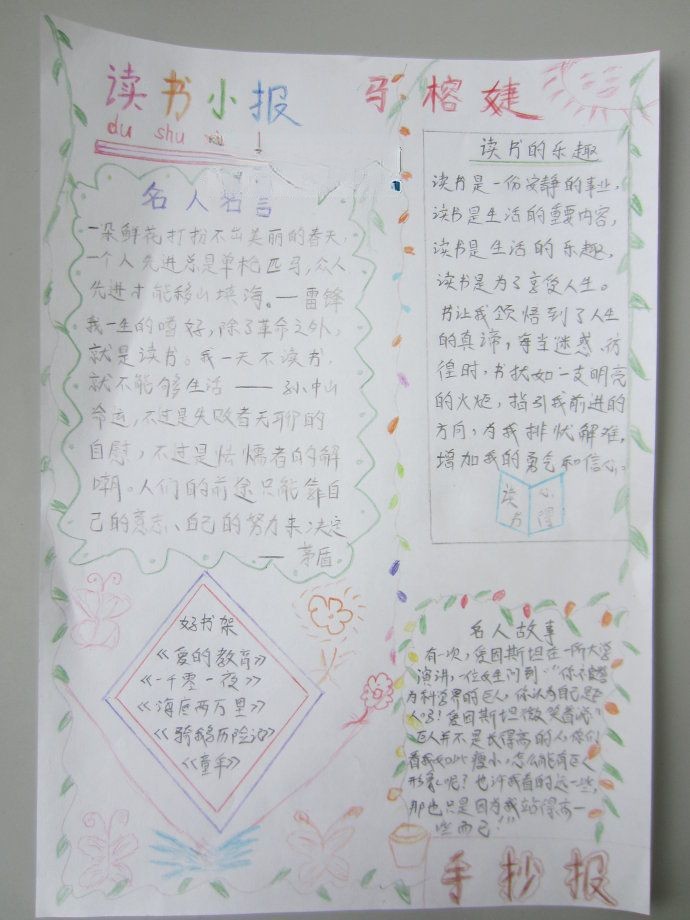 读书小报
du shu
马榕婕
名人名言
一朵鲜花打扮不出美丽的春天,
一个人先进总是单枪匹马,众人
先进才能移山填海。——雷锋
我一生的嗜好,除了革命之外,
就是读书。我一天不读书,
就不能够生活——孙中山
命运,不过是失败者无聊的
自慰,不过是怯懦者的解
嘲。人们的前途只能靠自
己的意志、自己的努力来决定
——茅盾
好书架
《爱的教育》
《一千零一夜》
《海底两万里》
《骑鹅历险记》
《童年》
读书的乐趣
读书是一份安静的事业,
读书是生活的重要内容,
读书是生活的乐趣,
读书是为了享受人生。
书让我领悟到了人生
的真谛,每当迷惑、彷
徨时,书犹如一支明亮
的火炬,指引我前进的
方向,为我排忧解难,
增加我的勇气和信心。
读书
心得
名人故事
有一次,爱因斯坦在一所大学
演讲,一位女生问到:“你不愧
为科学界的巨人,你认为自己是巨
人吗?爱因斯坦微笑着说
巨人并不是长得高的人,你们
看我如此瘦小,怎么能有巨人
形象呢?也许我看的远一些,
那也只是因为我站得高一
些而已!”
手抄报